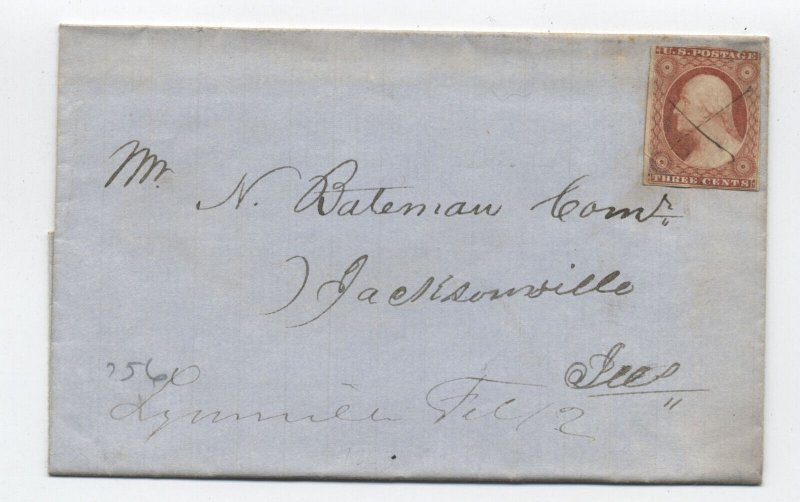 U.S. POSTAGE
THREE CENTS
Mr. N. Bateman Comr
Jacksonville
Ills
756
Lynnville Feb 12